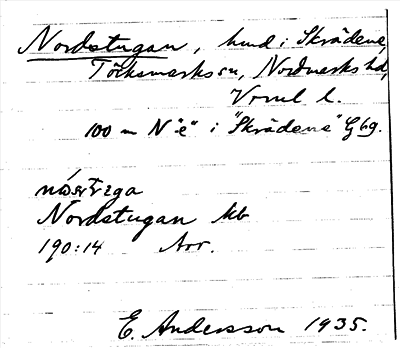 Nordstugan, hmd i Skrädene,
Töcksmarks sn, Nordmarks hd,
Vrml l.
100 m N "e" i "Skrädene" Gbg.
Nordstugan kb
190:14 Arr.
E. Andersson 1935.